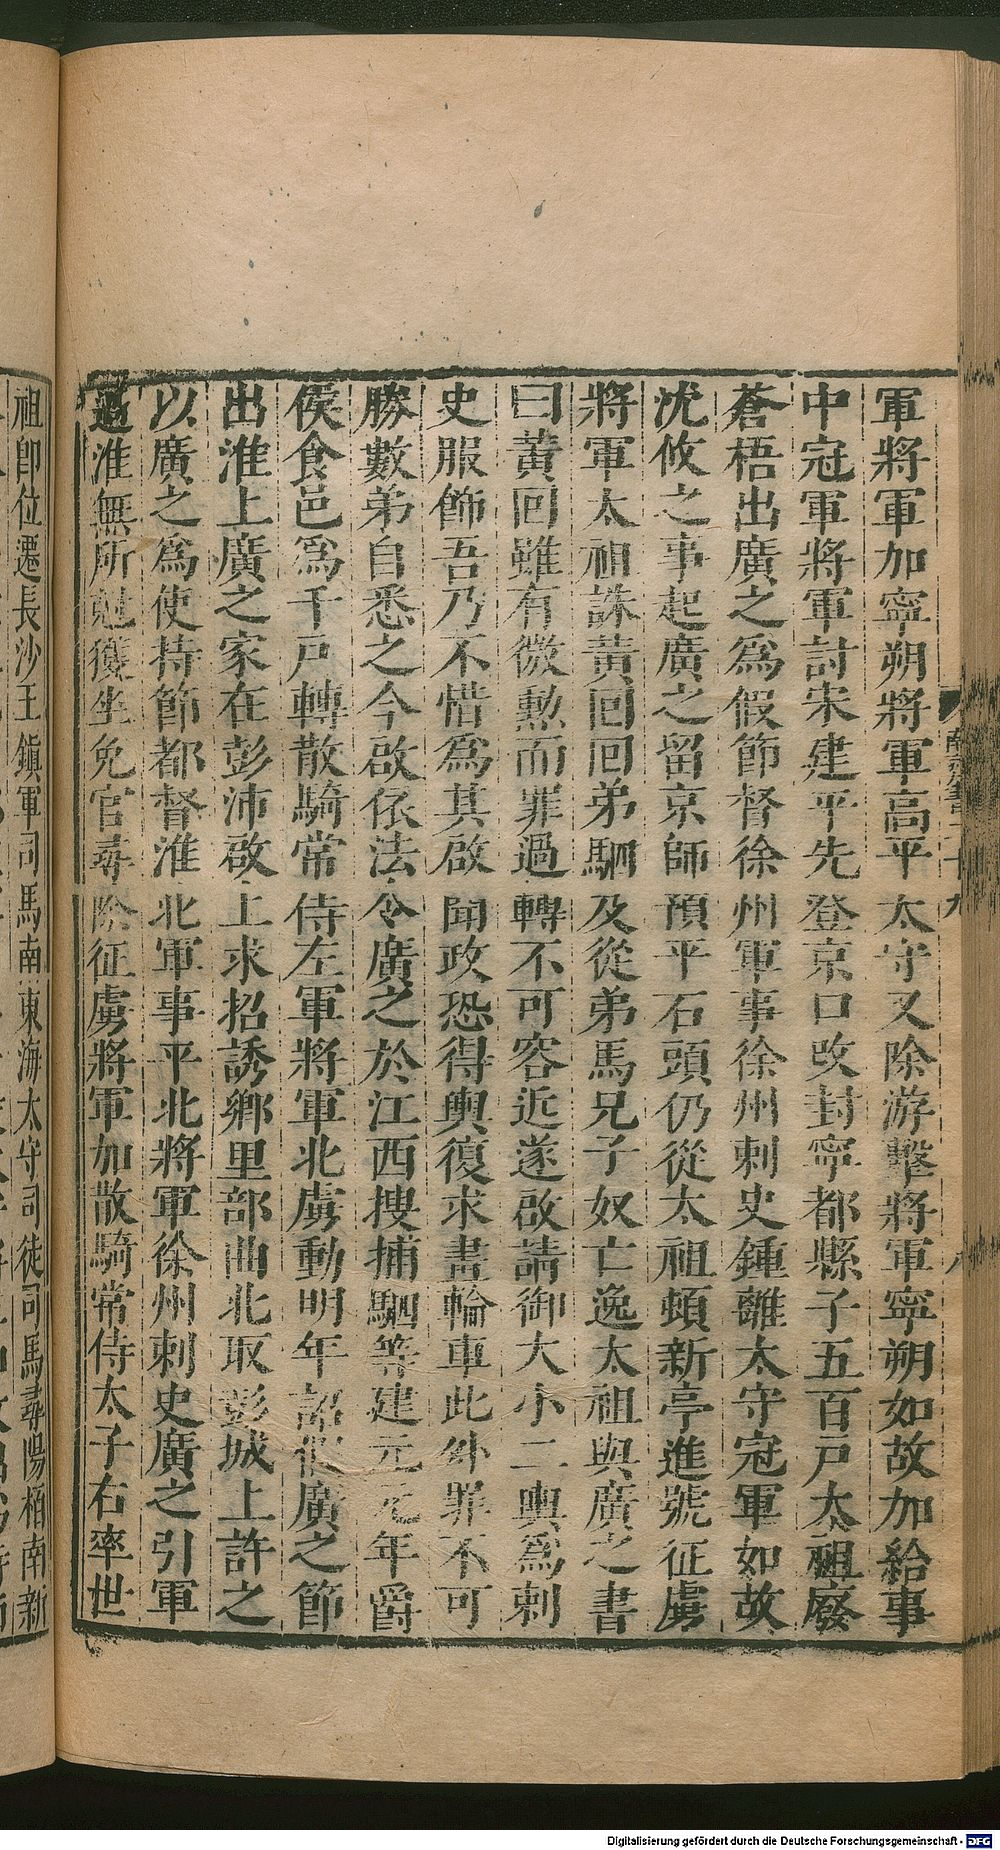 軍將軍加寧朔將軍高平太守又除游擊將軍寧朔如故加給事
中冠軍將軍討宋建平先登京口改封寧都縣子五百戸太祖廢
蒼梧出廣之爲假節督徐州軍事徐州刺史鍾離太守冠軍如故
沈攸之事起廣之留京師預平石頭仍從太祖頓新亭進號征虜
將軍太祖誅黃回回弟駟及從弟馬兄子奴亡逸太祖與廣之書
曰黃回雖有微勲而罪過轉不可容近遂啟請御大小二輿爲刺
史服飾吾乃不惜爲其啟聞政恐得輿復求畫輪車此外罪不可
勝數弟自悉之今啟依法令廣之於江西搜捕駟等建元元年爵
侯食邑爲千戸轉散騎常侍左軍將軍北虜動明年詔假廣之節
出淮上廣之家在彭沛啟上求招誘鄉里部曲北取彭城上許之
以廣之爲使持節都督淮北軍事平北將軍徐州刺史廣之引軍
過淮無所尅獲坐免官尋除征虜將軍加散騎常侍太子右率世
祖卽位遷長沙王鎭軍司馬南東海太守司徒司馬尋陽栢南新
Digitalisierung gefördert durch die Deutsche Forschungsgemeinschaft - DFG